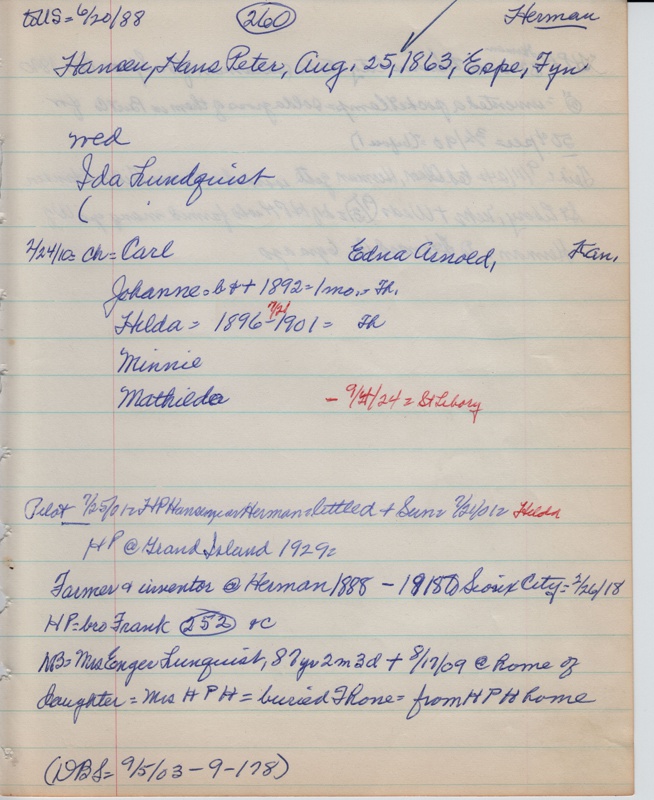 to US = 6/20/88 260 Herman
Hansen, Hans Peter, Aug. 25, 1863, Espe, Fyn
wed
Ida Lundquist
(
2/24/10 = ch = Carl Edna Arnold, Fran.
Johanne = b & + 1892 = 1 mo. = Th.
Hilda = 1896 - 7/21 1901 = Th
Minnie
Mathilda - 9/4/24 = St Libory
Pilot 7/25/01 = HP Hansen near Herman = little d + Sun = 7/21/01 = Hilda
HP @ Grand Island 1929 =
Farmer & inventor @ Herman 1888 - 1918 to Sioux City = 2/26/18
HP = bro Frank 252 & c
NB = Mrs Enger Lunquist, 87 yr 2 m 3 d + 8/17/09 @ home of
daughter = Mrs H P H = buried Fhone = from H P H home
(DBS = 9/5/03 - 9 - 178)